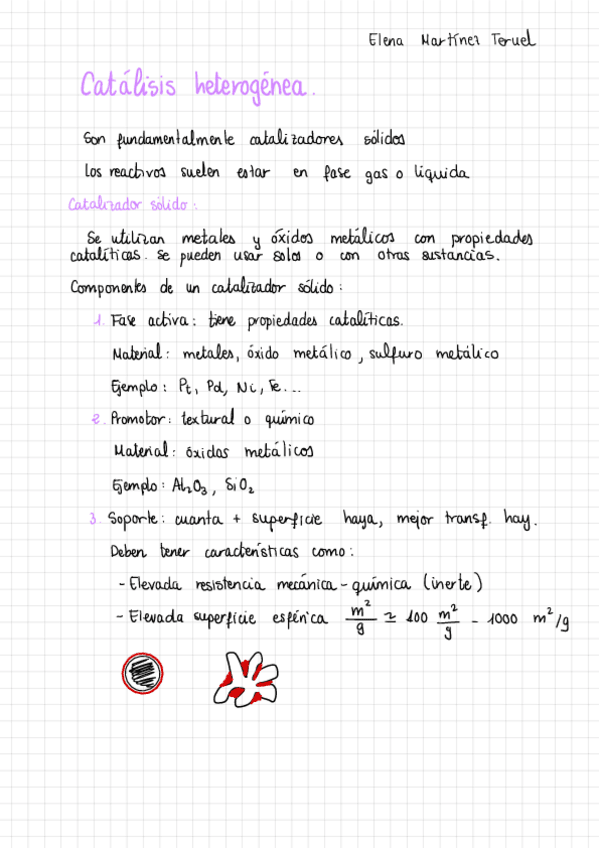 Elena Martínez Teruel
Catálisis heterogénea.
Son fundamentalmente catalizadores sólidos
Los reactivos suelen estar en fase gas o líquida
Catalizador sólido:
Se utilizan metales y óxidos metálicos con propiedades
catalíticas. Se pueden usar solos o con otras sustancias.
Componentes de un catalizador sólido:
1. Fase activa: tiene propiedades catalíticas.
Material: metales, óxido metálico, sulfuro metálico
Ejemplo: Pt, Pd, Ni, Fe...
2. Promotor: textural o químico
Material: óxidos metálicos
Ejemplo: Al₂O₃, SiO₂
3. Soporte: cuanta + superficie haya, mejor transf. hay.
Deben tener características como:
- Elevada resistencia mecánica - química (inerte)
- Elevada superficie esférica m²/g ≃ 100 m²/g - 1000 m²/g